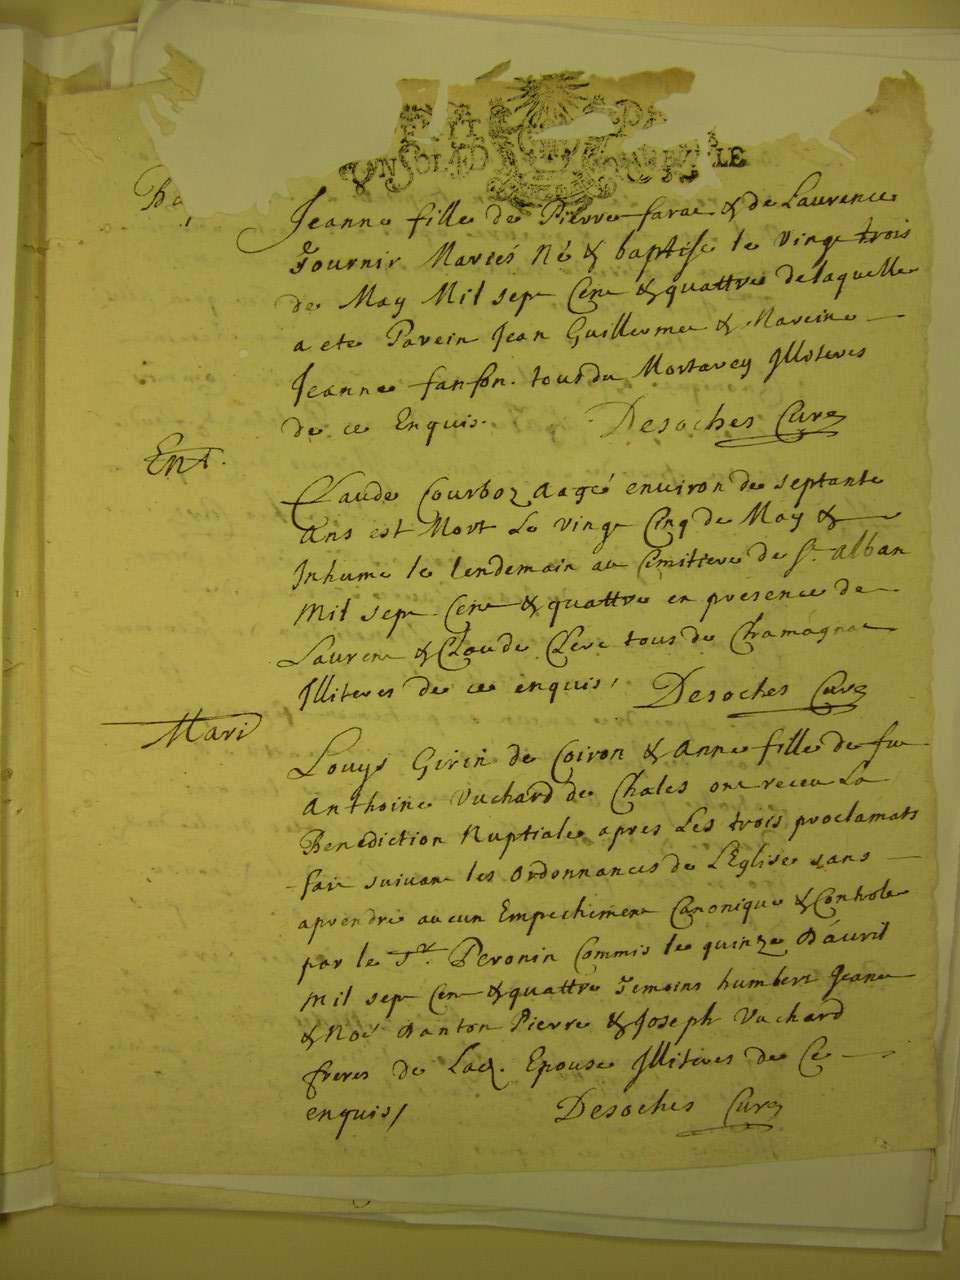 UN SOL LE
Jeanne fille de Pierre farae & de Laurence
fournir Mariés Né & baptise le vingt trois
de May Mil sept Cent & quattre delaquelle
a ete Parein Jean Guillerme & Mareine
Jeanne fanfon. tous du Mortarey Illiteres
de ce Enquis. Desoches Cure
Ent.
Claude Courboz aagé environ de septante
Ans est Mort Le vingt Cinq de May &
Inhume le lendemain au Cemitiere de St. Alban
Mil sept Cent & quattre en presence de
Laurent & Claude Clerc tous de Chamagnae
Illiteres de ce enquis, Desoches Cure
Mari
Louys Girin de Coiron & Anne fille de fu
Anthoine Vuchard de Chales ont receu La
Benediction Nuptiale apres Les trois proclamats
fait suivant les ordonnances de L'Eglise sans
aprendre aucun Empechement Canonique & Controle
par le Sr. Peronin Commis le quinze D'avril
Mil sept Cent & quattre Temoins humbert Jeane
& Noé Danton Pierre & Joseph Vuchard
freres de Lad. Epouse Illiteres de Ce
enquis/ Desoches Cure